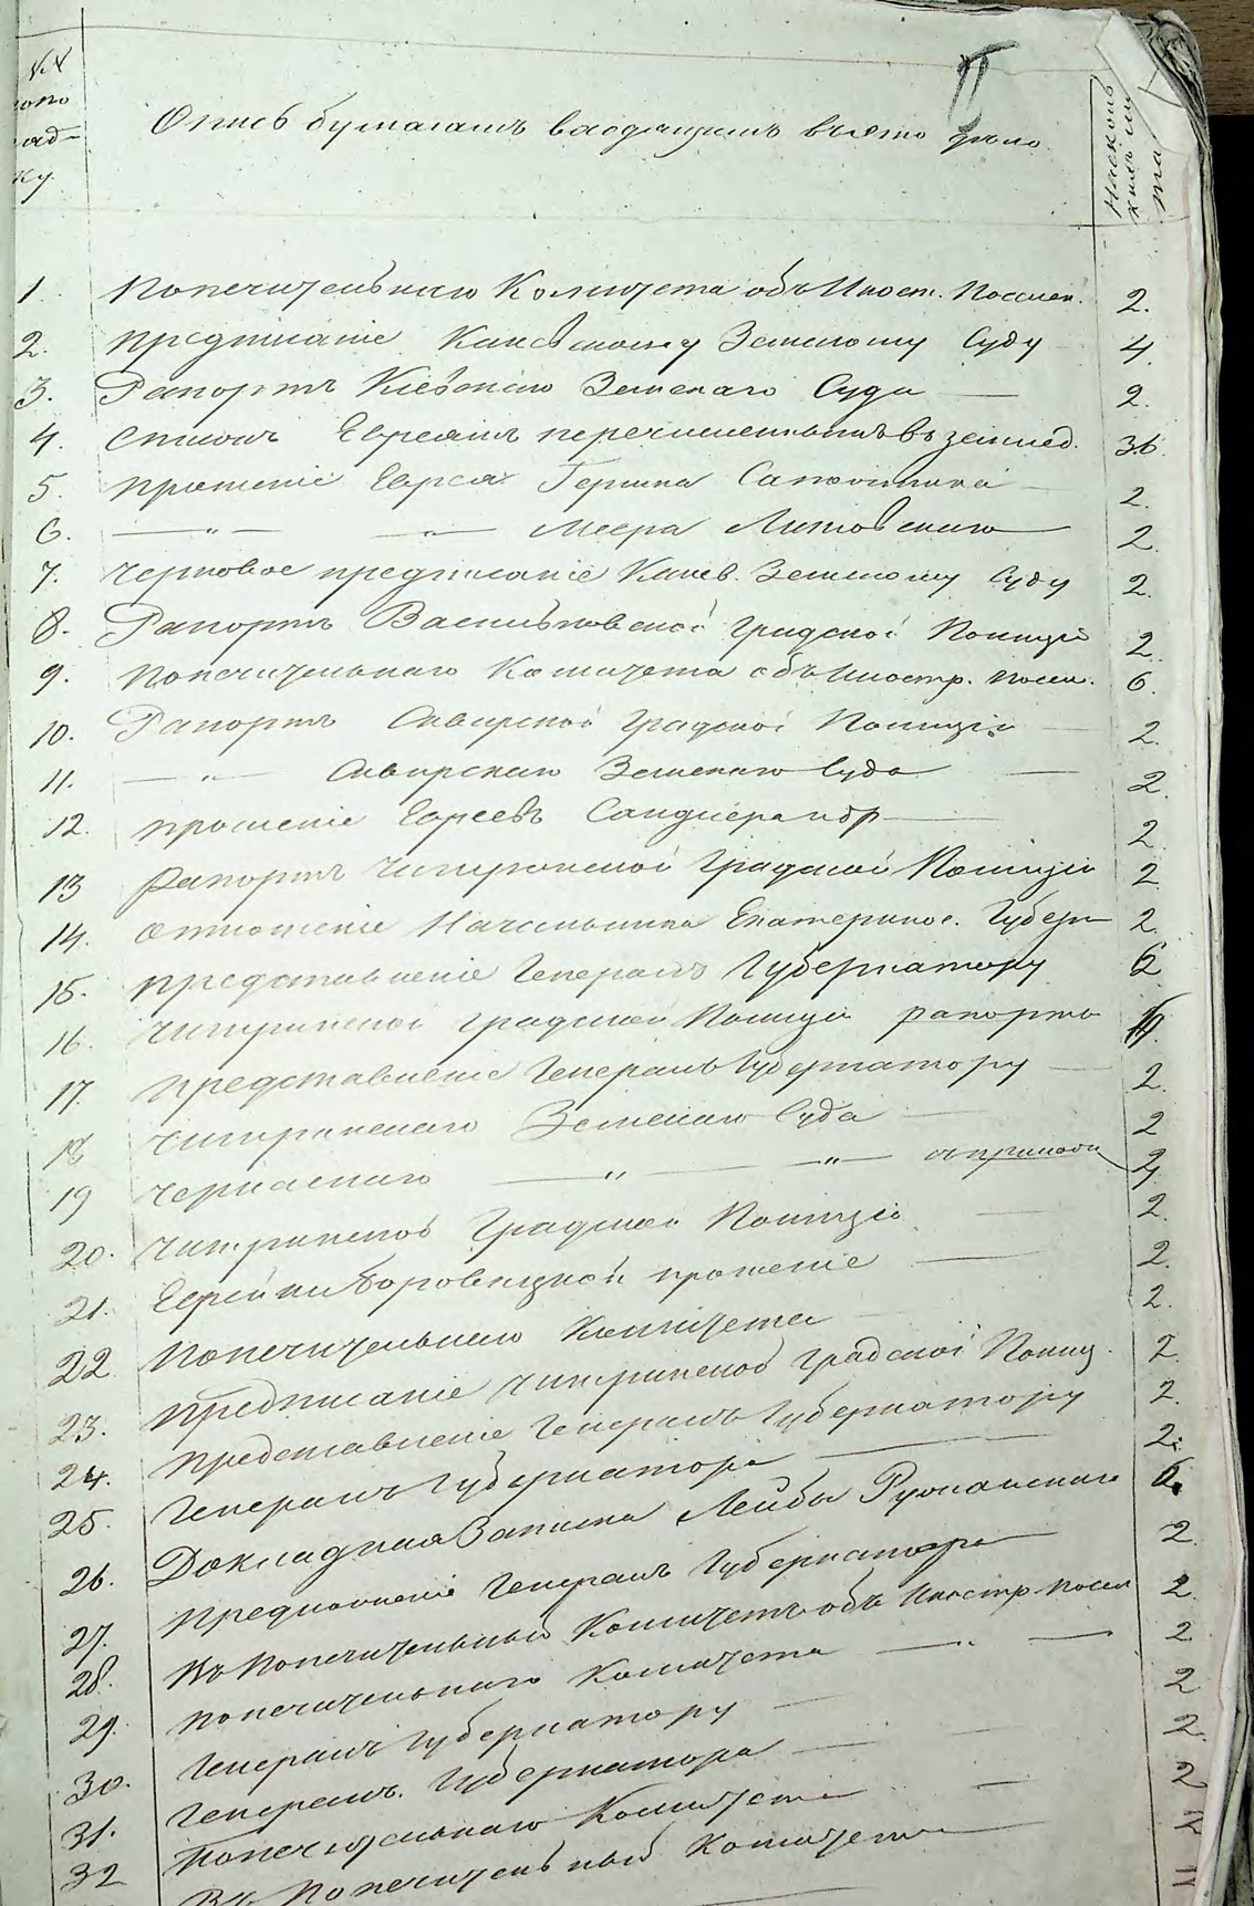 №№
Опись бумагамъ входящимъ въ это дѣло
1. Попечительнаго Комитета объ Иност. Поселен. 2.
2. Предписаніе Каневскому Земскому Суду 4.
3. Рапортъ Кіевскаго Земскаго Суда 2.
4. Списокъ Евреямъ перечисленнымъ въ землед. 36.
5. Прошеніе Еврея Гершка 2.
6. — " — — " — Меера Литовскаго 2.
7. Черновое предписаніе Канев. Земскому Суду 2.
8. Рапортъ Васильковской Градской Полиціи 2.
9. Попечительнаго Комитета объ Иностр. посел. 6.
10. Рапортъ Сквирской Градской Полиціи 2.
11. — " — Сквирскаго Земскаго Суда 2.
12. Прошеніе Евреевъ и др 2.
13 Рапортъ Чигиринской Градской Полиціи 2
14. Отношеніе Начальника Екатеринос. Губерн 2.
15. Представленіе Генералъ Губернатору 6
16. Чигиринской Градской Полиціи рапортъ
17. Представленіе Генералъ Губернатору 2.
18 Чигиринскаго Земскаго Суда 2
19 Черкаскаго — " — — " —
20. Чигиринской Градской Полиціи 2.
21. Еврейки Боровицкой прошеніе 2.
22. Попечительнаго Комитета 2.
23. Предписаніе Чигиринской Градской Полиц. 2.
24. Представленіе Генералъ Губернатору 2.
25. Генералъ Губернатора 2.
26. Докладная Записка Лейбы 6.
27. Предложеніе Генералъ Губернатора 2.
28. Въ Попечительный Комитетъ объ Иностр. посел 2.
29. Попечительнаго Комитета — " — 2.
30. Генералъ Губернатору 2
31. Генералъ Губернатора 2.
32 Попечительнаго Комитета 2
Въ Попечительный Комитетъ